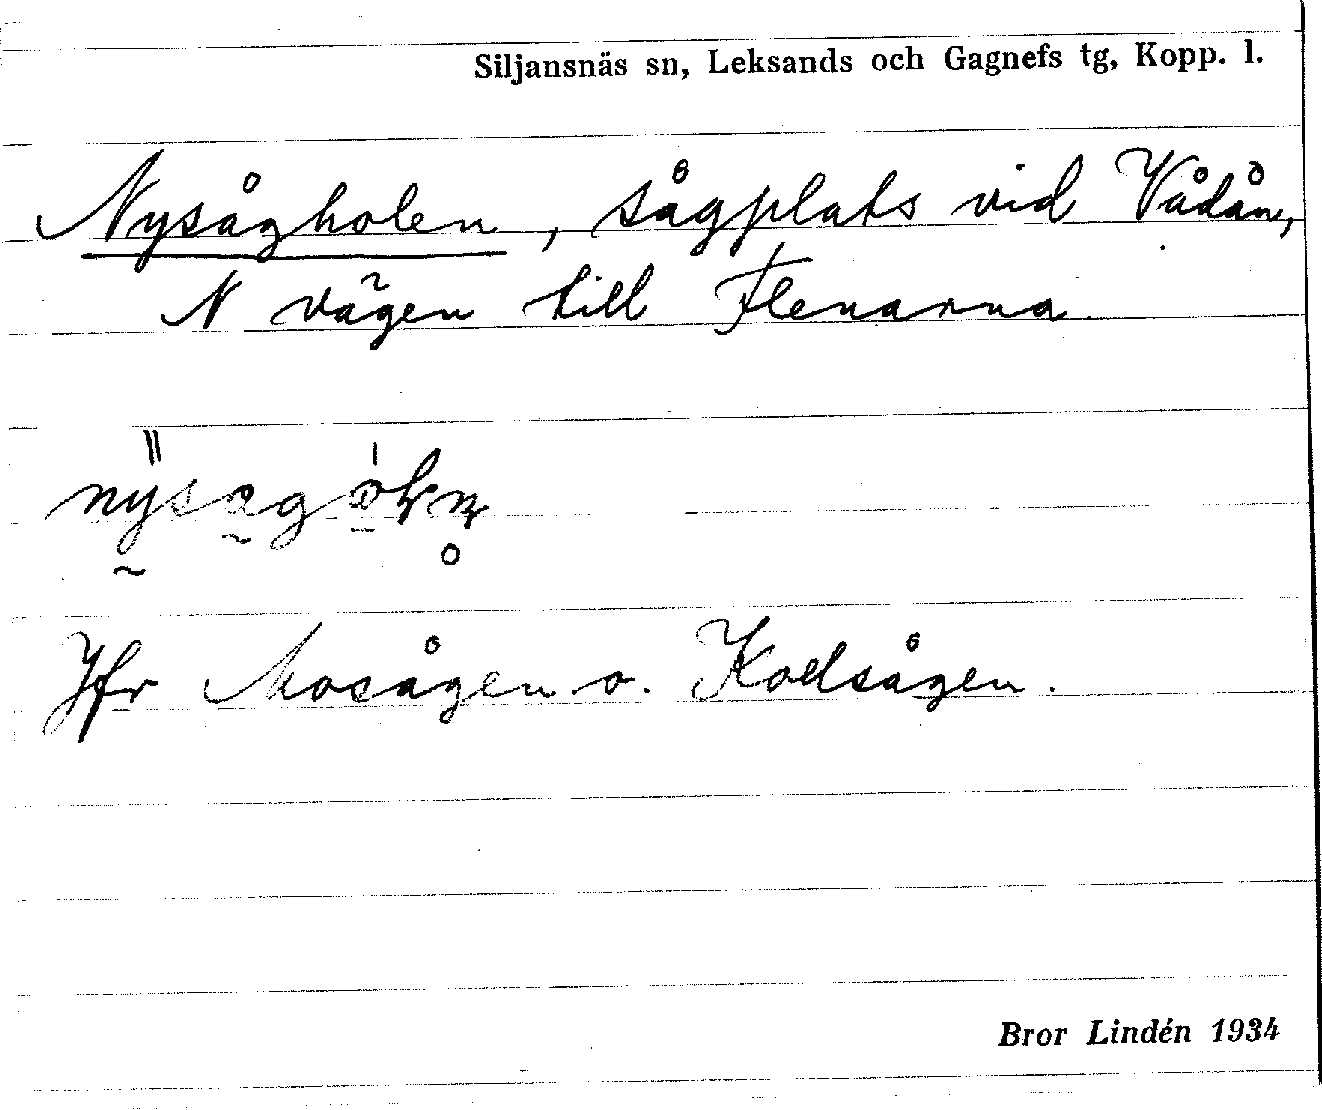 Siljansnäs sn, Leksands och Gagnefs tg, Kopp. l.
Nysågholen, sågplats vid Vådån,
N vägen till Flenarna
Jfr Mosågen o. Kodsågen.
Bror Lindén 1934